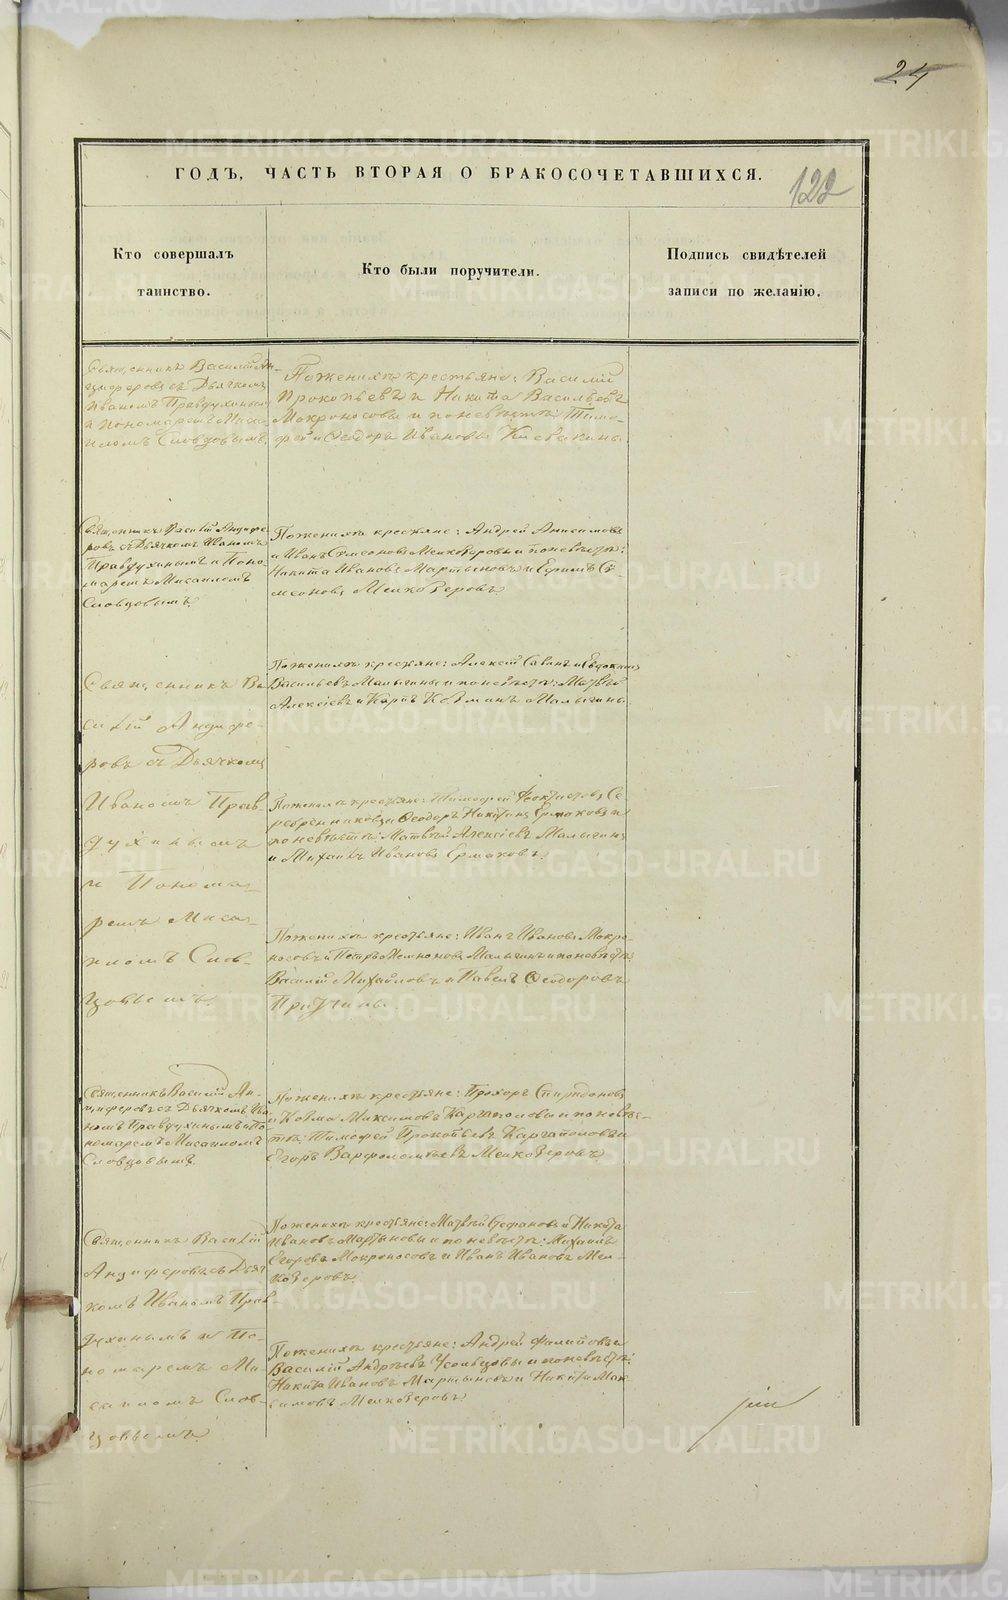 24
ГОДЪ, ЧАСТЬ ВТОРАЯ О БРАКОСОЧЕТАВШИХСЯ.
122
Кто совершалъ
таинство.
Кто были поручители.
Подпись свидѣтелей
записи по желанію.
Священникъ Василій Ан-
циферовъ съ Дьячкомъ
Иваномъ Правдухинымъ
и Пономаремъ Миса-
иломъ Словцовымъ
По женихѣ крестьяне: Василій
Прокопьевъ и Никита Васильевъ
Мокроносовы и по невѣстѣ: Тимо-
фей и Ѳеодоръ Ивановы Клевакины
Священникъ Василій Анцифе-
ровъ съ Дьячкомъ Иваномъ
Правдухинымъ и Поно-
маремъ Мисаиломъ
Словцовымъ
По женихѣ крестьяне: Андрей Анисимовъ
и Иванъ Симеоновъ Мелкозеровы и по невѣстѣ:
Никита Ивановъ Мартыновъ и Ефимъ Си-
меоновъ Мелкозеровъ
Священникъ Ва-
силій Анцифе-
ровъ съ Дьячкомъ
Иваномъ Прав-
духинымъ
и Понома-
ремъ Миса-
иломъ Слов-
цовымъ
По женихѣ крестьяне: Алексій Савинъ и Евдокимъ
Васильевъ Малыгины и по невѣстѣ: Матвѣй
Алексіевъ и Карпъ Козминъ Малыгины
По женихѣ крестьяне: Тимофей Феоктистовъ Се-
ребренниковъ и Ѳеодоръ Никитинъ Ермаковъ и
по невѣстѣ: Матвѣй Алексіевъ Малыгинъ
и Михаилъ Ивановъ Ермаковъ
По женихѣ крестьяне: Иванъ Ивановъ Мокро-
носовъ и Петръ Малыгинъ и по невѣстѣ:
Василій Михайловъ и Павелъ Ѳеодоровъ
Священникъ Василій Ан-
циферовъ съ Дьячкомъ Ива-
номъ Правдухинымъ и По-
номаремъ Мисаиломъ
Словцовымъ
По женихѣ крестьяне: Прохоръ Спиридоновъ
и Козма Максимовъ Каргаполовы и по невѣс-
тѣ: Тимофей Прокопьевъ Каргаполовъ и
Егоръ Варфоломѣевъ Мелкозеровъ
Священникъ Василій
Анциферовъ съ Дьяч-
комъ Иваномъ Прав-
духинымъ и По-
номаремъ Ми-
саиломъ Слов-
цовымъ
По женихѣ крестьяне: Матвѣй Стефановъ и Никита
Ивановъ Мартыновы и по невѣстѣ: Михаилъ
Егоровъ Мокроносовъ и Иванъ Ивановъ Мел-
козеровъ
По женихѣ крестьяне: Андрей Филиповъ и
Василій Андрѣевъ Усольцовы и по невѣстѣ:
Никита Ивановъ Мартыновъ и Никита Мак-
симовъ Мелкозеровъ
METRIKI.GASO-URAL.RU